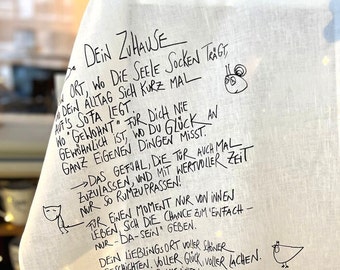 DEIN ZUHAUSE
ORT, WO DIE SEELE SOCKEN TRÄGT,
DEIN ALLTAG SICH KURZ MAL
AUFS SOFA LEGT.
WO "GEWOHNT" FÜR DICH NIE
GEWÖHNLICH IST, WO DU GLÜCK AN
GANZ EIGENEN DINGEN MISST.
DAS GEFÜHL, DIE TÜR AUCH MAL
ZUZULASSEN, UND MIT WERTVOLLER ZEIT
NUR SO RUMZUPRASSEN!
FÜR EINEN MOMENT NUR VON INNEN
LEBEN, SICH DIE CHANCE ZUM "EINFACH-
NUR-DA-SEIN" GEBEN.
DEIN LIEBLINGSORT VOLLER SCHÖNER
GESCHICHTEN, VOLLER GLÜCK, VOLLER LACHEN.